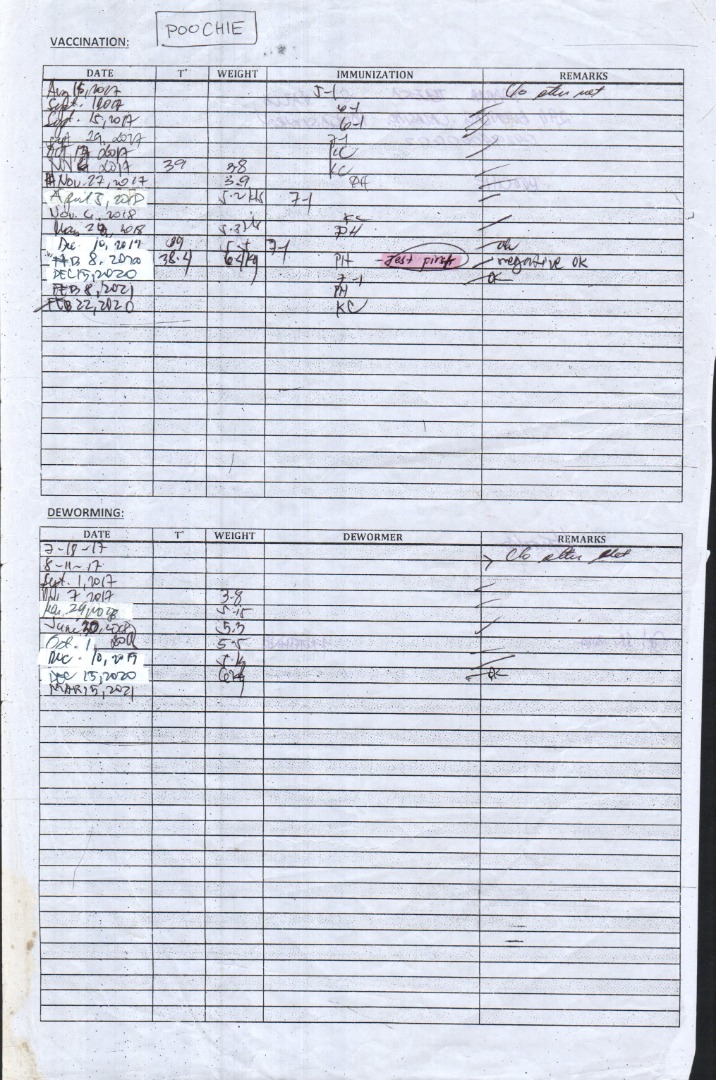 POOCHIE
VACCINATION:
DATE T° WEIGHT IMMUNIZATION REMARKS
Aug 15, 2017 5-1 C/o other vet
Sept. 1, 2017 6-1
Sept. 15, 2017 6-1
Sept 29, 2017 7-1
Oct 13, 2017 KC
Nov 2017 39 3.8 KC
Nov. 27, 2017 3.9 PH
April 5, 2018 5.2 kls 7-1
Nov. 6, 2018 KC
2018 5.3 kls PH
Dec. 10, 2019 7-1 ok
FEB 8, 2020 38.4 6 kg PH - test pinch negative ok
DEC 15, 2020 7-1 ok
FEB 8, 2021 PH
FEB 22, 2020 KC
DEWORMING:
DATE T° WEIGHT DEWORMER REMARKS
7-18-17 C/o other
8-11-17
Sept. 1, 2017
7 2017 3.8
29, 2018 5.15
June 30, 2018 5.3
Oct. 1, 5.5
Dec. 10, 2019
DEC 15, 2020 6 kg ok
MAR 15, 2021